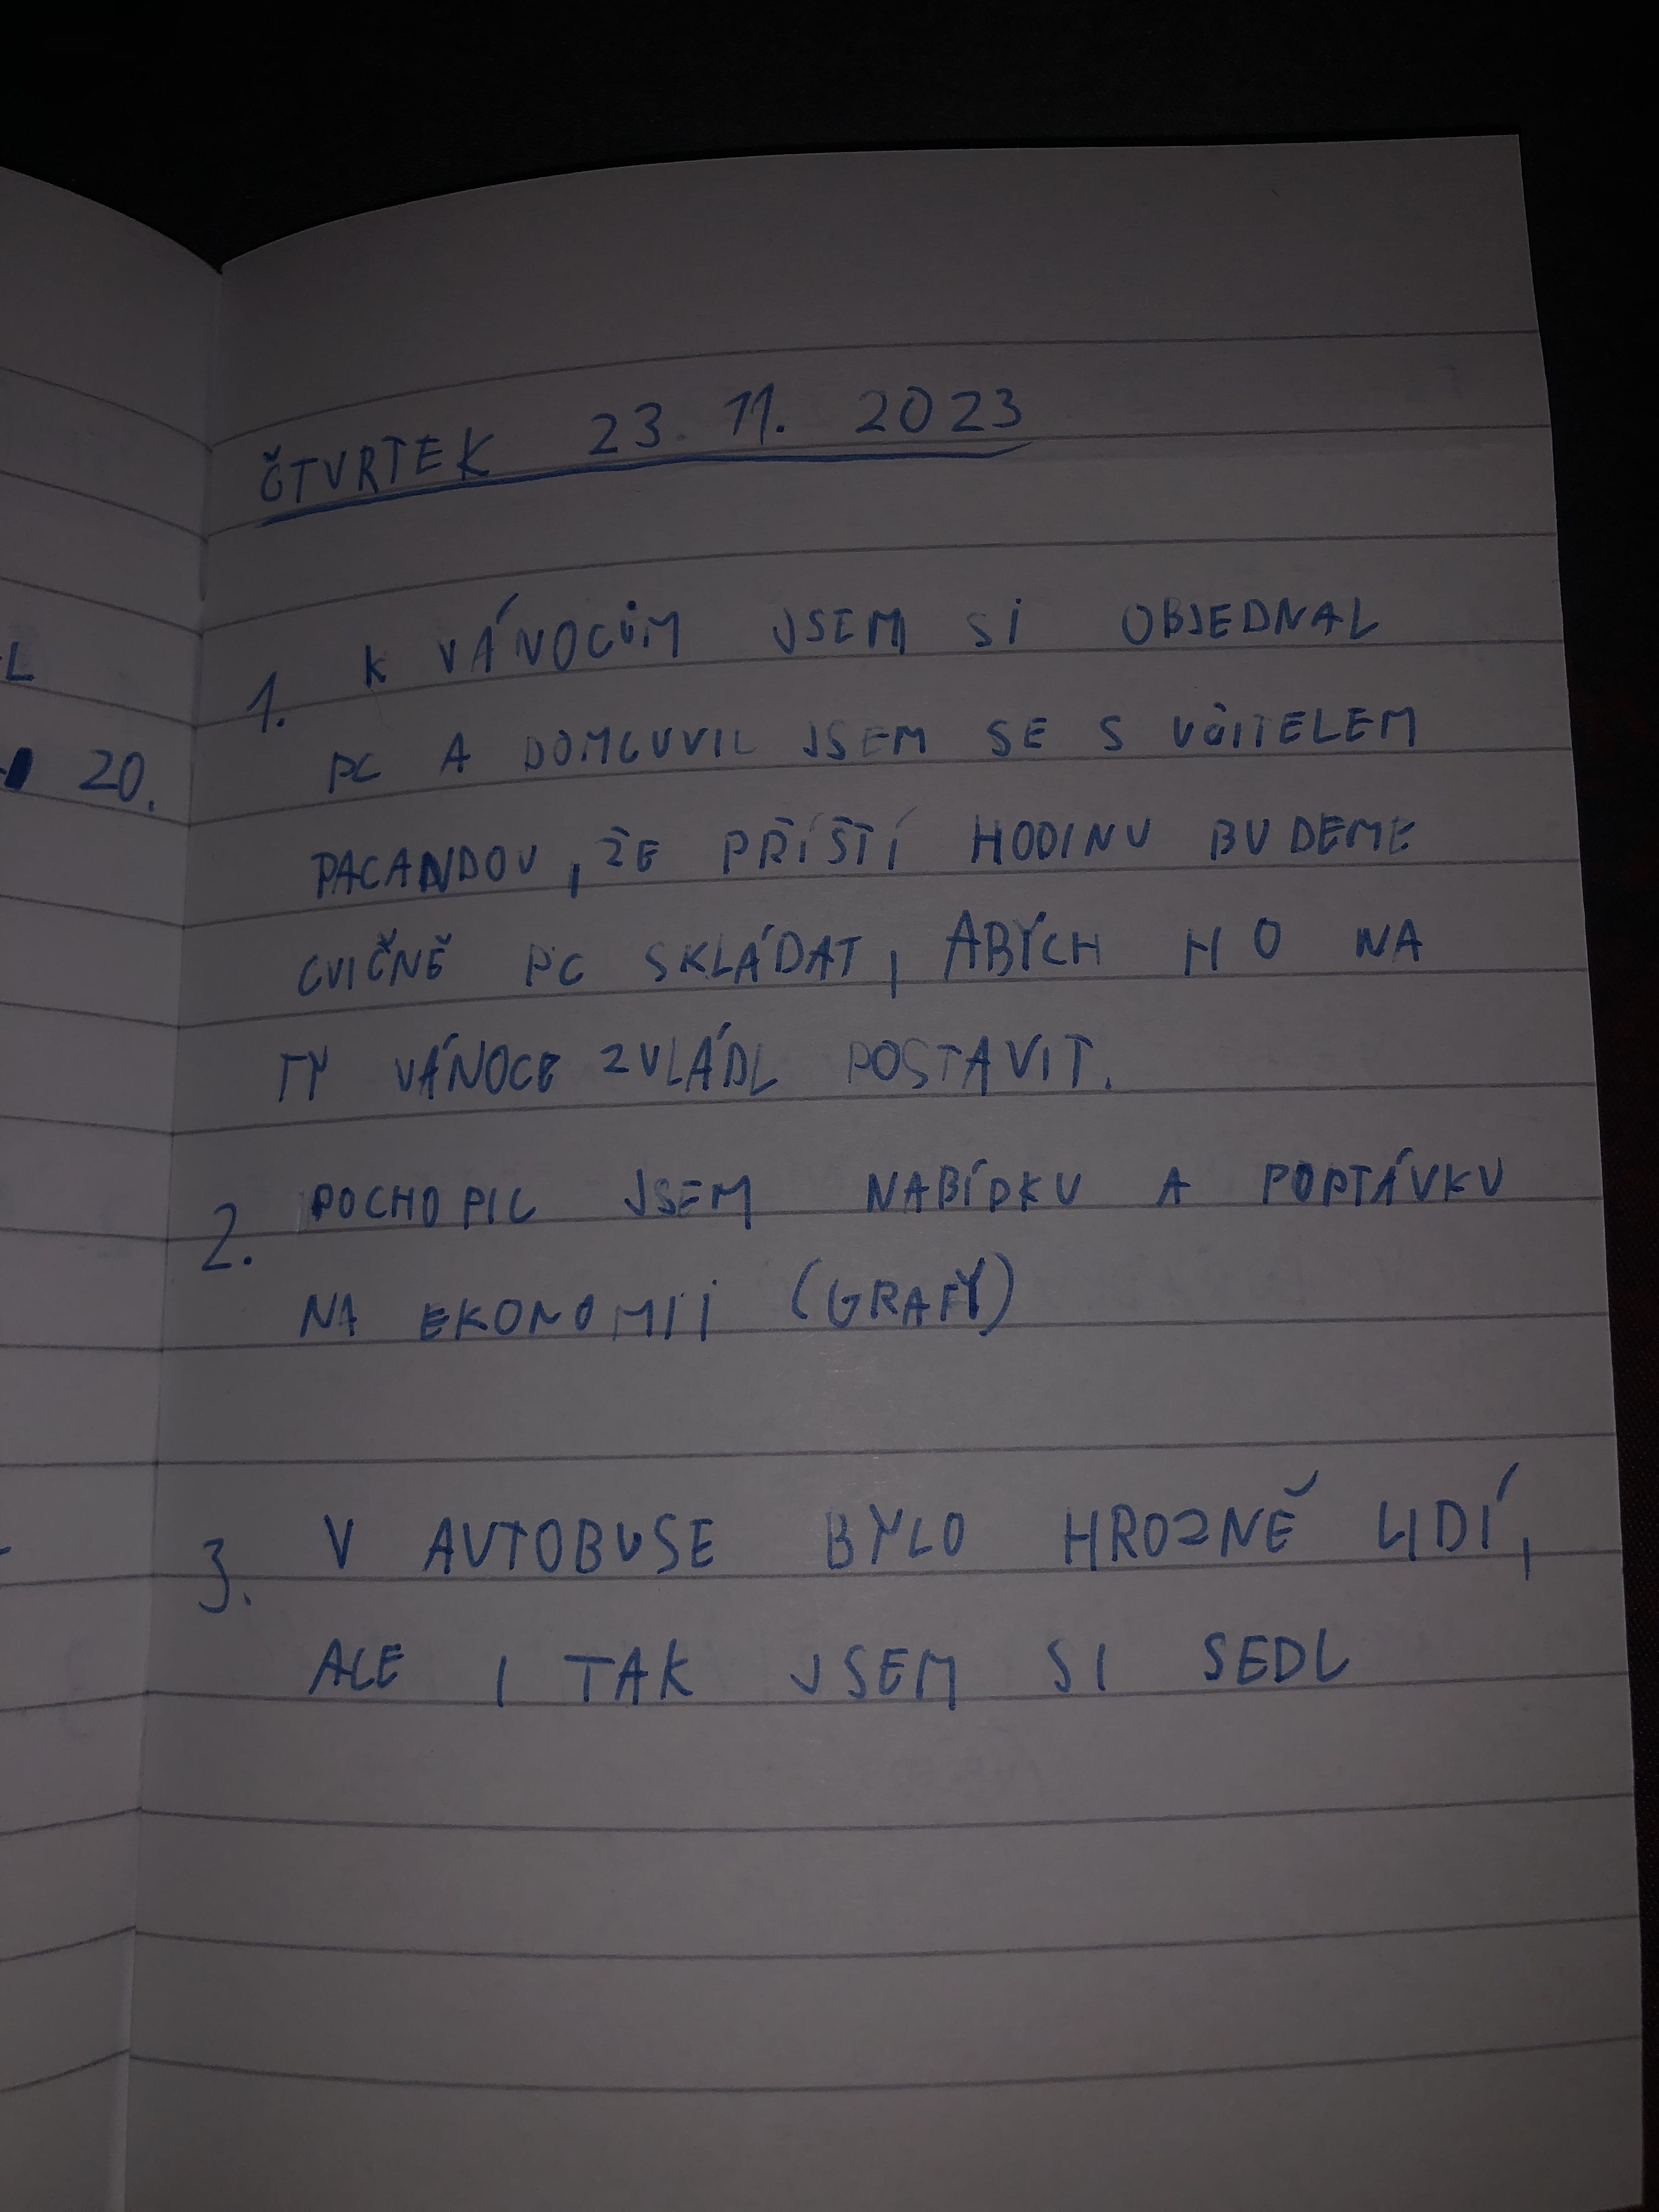 ČTVRTEK 23. 11. 2023
1. K VÁNOCŮM JSEM SI OBJEDNAL
PC A DOMLUVIL JSEM SE S UČITELEM
PACANDOU, ŽE PŘÍŠTÍ HODINU BUDEME
CVIČNĚ PC SKLÁDAT, ABYCH HO NA
TY VÁNOCE ZVLÁDL POSTAVIT.
2. POCHOPIL JSEM NABÍDKU A POPTÁVKU
NA EKONOMII (GRAFY)
3. V AUTOBUSE BYLO HROZNĚ LIDÍ,
ALE I TAK JSEM SI SEDL
L
20.